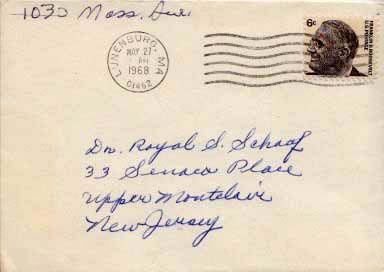 1030 Mass. Ave.
LUNENBURG, MA
MAY 27
PM
1968
01462
6c
FRANKLIN D. ROOSEVELT
U.S. POSTAGE
Dr. Royal S. Schaaf
33 Seneca Place
Upper Montclair
New Jersey